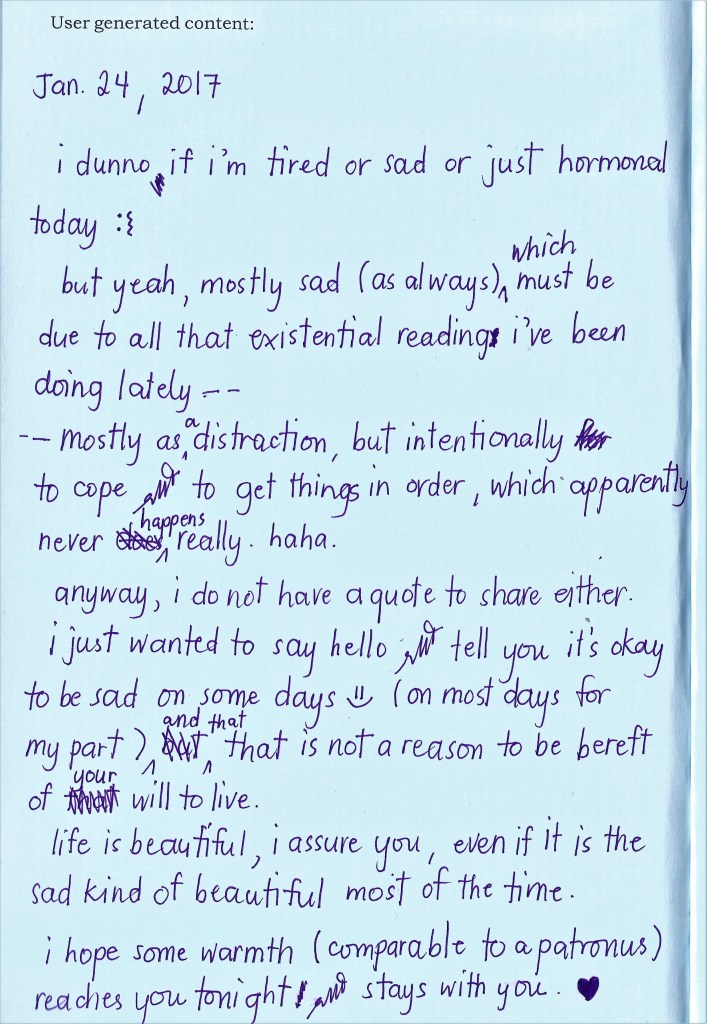 User generated content:
Jan. 24, 2017
i dunno if i'm tired or sad or just hormonal
today :{
which
but yeah, mostly sad (as always), must be
due to all that existential reading i've been
doing lately --
-- mostly as a distraction, but intentionally
to cope and to get things in order, which apparently
happens
never really. haha.
anyway, i do not have a quote to share either.
i just wanted to say hello and tell you it's okay
to be sad on some days :) (on most days for
and that
my part) that is not a reason to be bereft
your
of will to live.
life is beautiful, i assure you, even if it is the
sad kind of beautiful most of the time.
i hope some warmth (comparable to a patronus)
reaches you tonight and stays with you. ♥